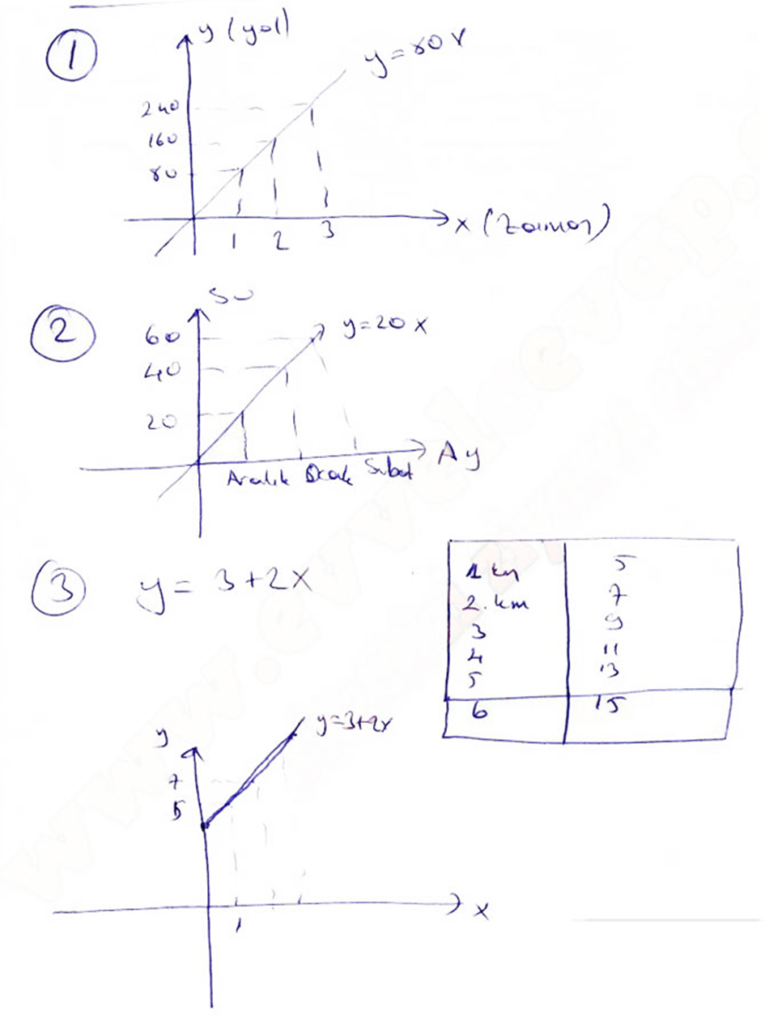 1
y (yol)
y=80x
240
160
80
1 2 3
x (Zaman)
2
Su
60
40
20
y=20x
Aralık Ocak Şubat
Ay
3
y = 3+2x
1 km 5
2. km 7
3 9
4 11
5 13
6 15
y
y=3+2x
7
5
1
x